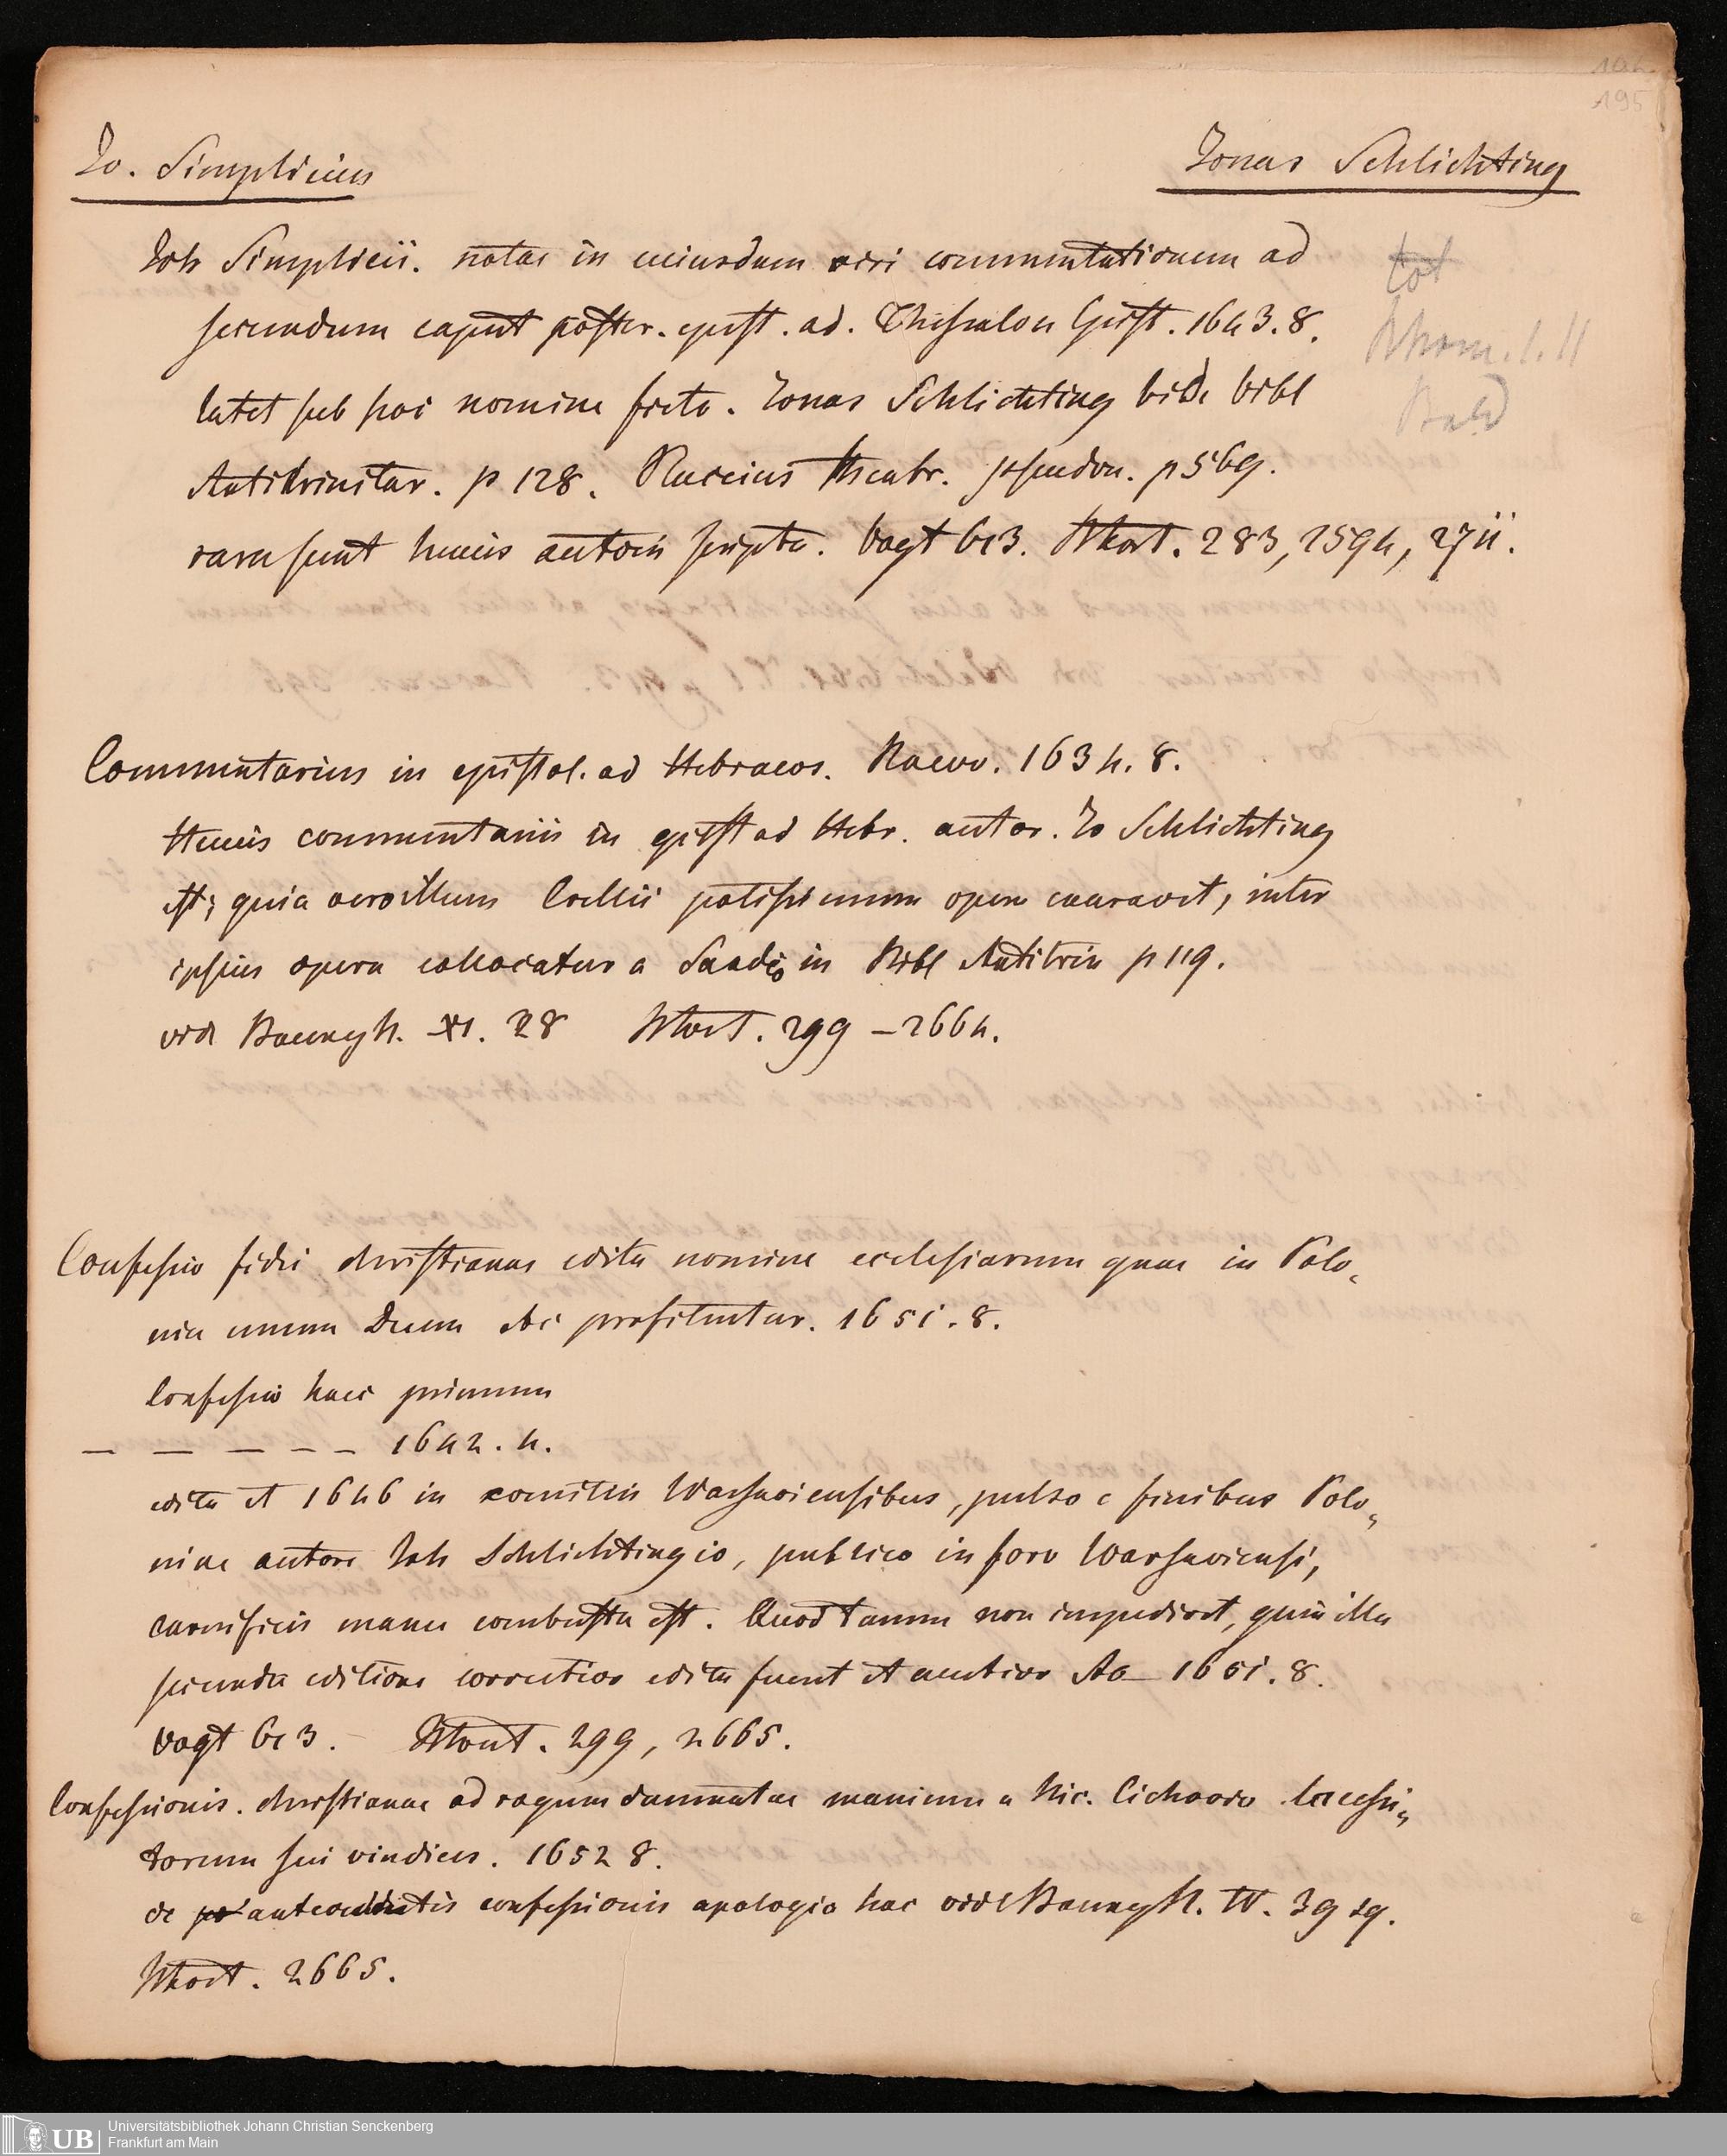 195
Jo. Simplicius
Jonas Schlichting
Joh Simplicii. notae in cuiusdam viri commentationem ad
secundum caput poster. epist. ad. Thessalon Girst. 1643. 8.
latet sub hoc nomine ficto. Jonas Schlichting vide bibl
Antitrinitar. p 128. Placcius theatr. pseudon. p 569.
rara sunt huius autoris scripta. Vogt 613. Wkart. 283, 2594, 2711.
tot
Bald
Commentarius in epistol. ad Hebraeos. Racov. 1634. 8.
Huius commentarii in epist ad Hebr. autor. Jo Schlichting
est; quia vero illum Crellii potissimum opera exaravit, inter
ipsius opera collocatur a Sandio in Bibl Antitrin p 119.
vid Baumgh. XI. 28 Wkart. 299 – 2664.
Confessio fidei christianae edita nomine ecclesiarum quae in Polo„
nia unum Deum etc profitentur. 1651. 8.
Confessio haec primum
– – – – – 1642. 4.
edita et 1646 in comitiis Warsaviensibus, pulso e finibus Polo„
niae autore Joh Schlichtingio, publico in foro Warsaviensi,
carnificis manu combusta est. Quod tamen non impedivit, quin illa
secunda editione correctior edita fuerit et auctior Ao 1651. 8.
Vogt 613. – Wkart. 299, 2665.
Confessionis. christianae ad rogum damnatae manium a Nic. Cichovio lacessi„
torum sui vindices. 1652 8.
de antecedentis confessionis apologia hac vide Baumgh. IV. 39 sq.
Wkart. 2665.
Universitätsbibliothek Johann Christian Senckenberg
Frankfurt am Main
UB